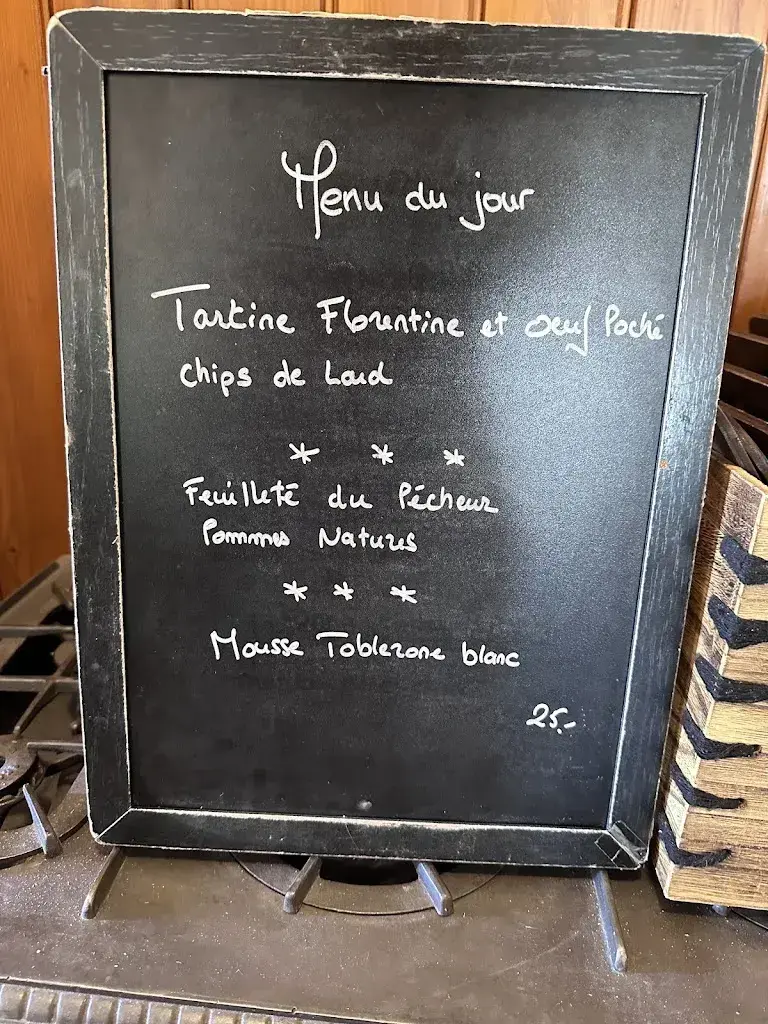 Menu du jour
Tartine Florentine et oeuf Poché
chips de Lard
* * *
Feuilleté du Pêcheur
Pommes Natures
* * *
Mousse Toblerone blanc
25.-